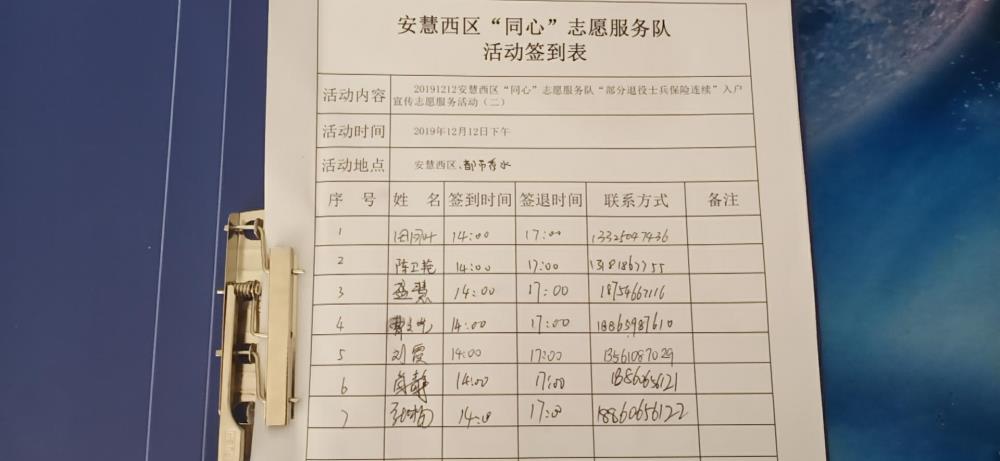 安慧西区“同心”志愿服务队
活动签到表
活动内容 20191212安慧西区“同心”志愿服务队“部分退役士兵保险连续”入户
宣传志愿服务活动（二）
活动时间 2019年12月12日下午
活动地点 安慧西区、都市春水
序号 姓名 签到时间 签退时间 联系方式 备注
1 14:00 17:00 13325047436
2 陈卫艳 14:00 17:00
3 盛慧 14:00 17:00 18754667116
4 14:00 17:00 18865987610
5 刘霞 14:00 17:00 13561087029
6 肖静 14:00 17:00
7 14:00 17:00 18860656122